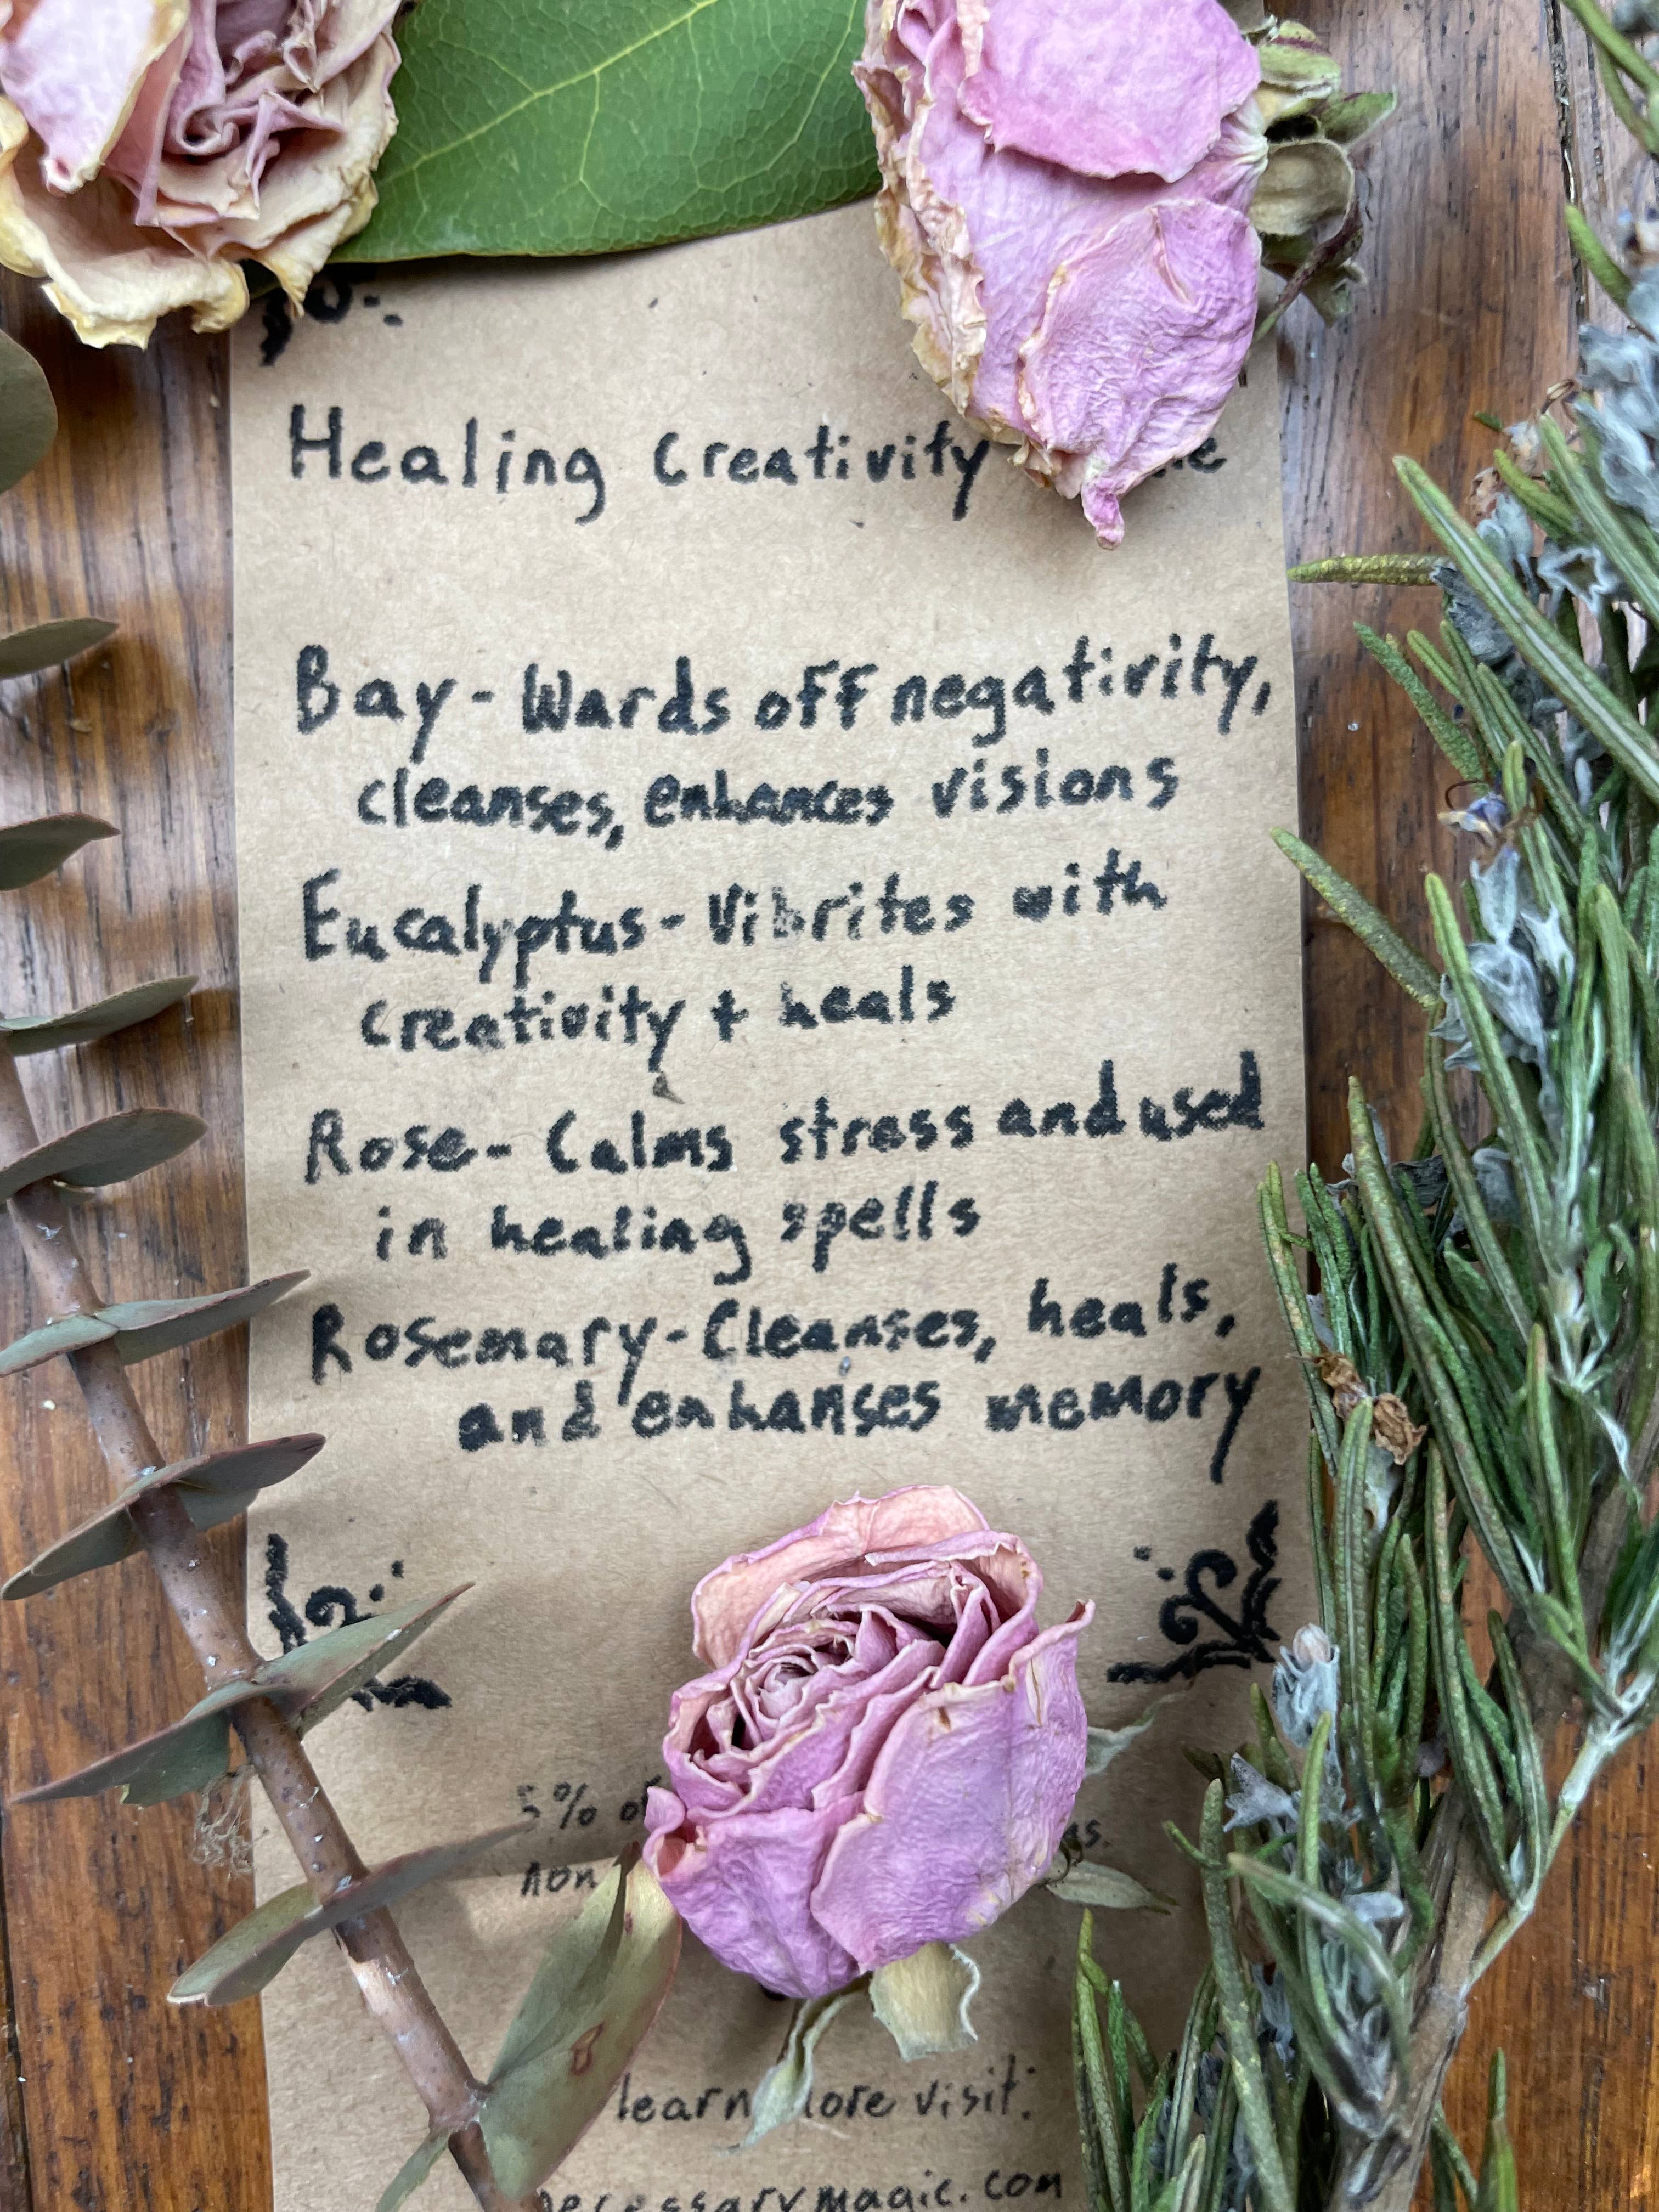 Healing Creativity
Bay - Wards off negativity,
cleanses, enhances visions
Eucalyptus - Vibrites with
creativity + heals
Rose - Calms stress and used
in healing spells
Rosemary - Cleanses, heals,
and enhanses memory
5% of
non
learn more visit:
necessarymagic.com